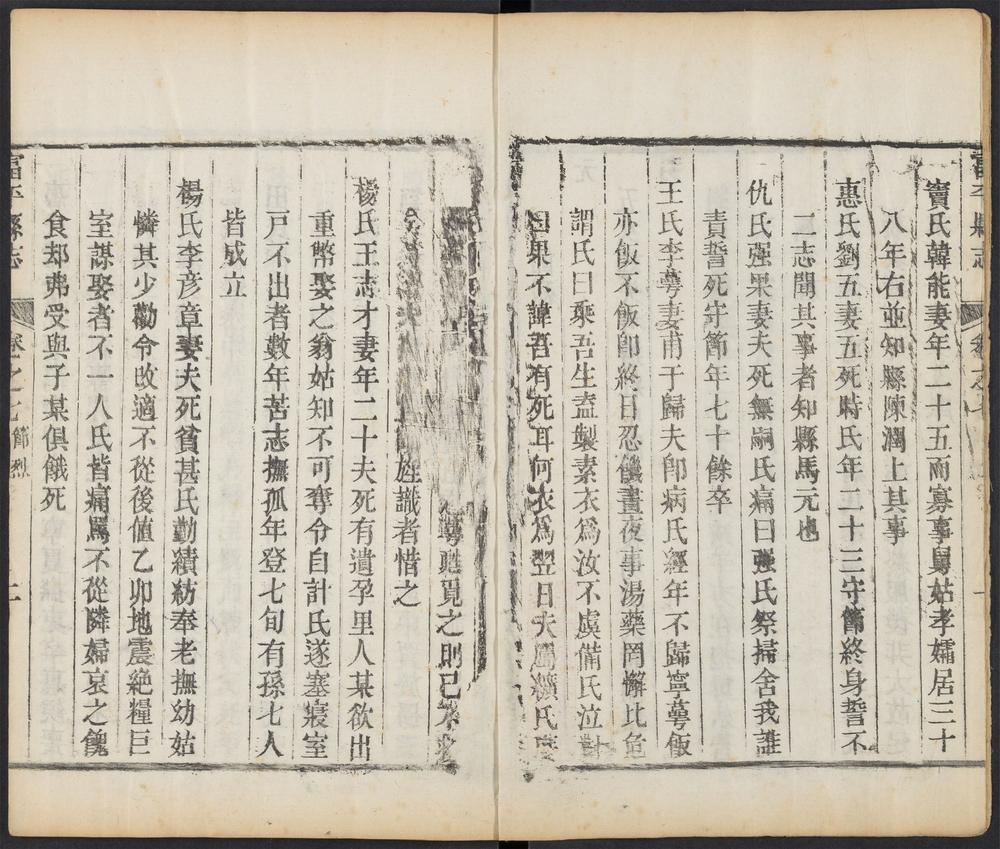 富平縣志
竇氏韓能妻年二十五而寡事舅姑孝孀居三十
八年右並知縣陳潤上其事
惠氏劉五妻五死時氏年二十三守節終身誓不
二志聞其事者知縣馬元也
仇氏强果妻夫死無嗣氏痛曰强氏祭掃舍我誰
責誓死守節年七十餘卒
王氏李蕚妻甫于歸夫卽病氏經年不歸寧蕚飯
亦飯不飯卽終日忍饑晝夜事湯藥罔懈比危
謂氏曰乘吾生盍製素衣爲汝不虞備氏泣對
曰果不諱吾有死耳何衣爲翌日夫屬纊氏
蕚甦覓之則已
旌識者惜之
楊氏王志才妻年二十夫死有遺孕里人某欲出
重幣娶之翁姑知不可奪令自計氏遂塞寢室
戸不出者數年苦志撫孤年登七旬有孫七人
皆成立
楊氏李彦章妻夫死貧甚氏勤績紡奉老撫幼姑
憐其少勸令改適不從後値乙卯地震絶糧巨
室謀娶者不一人氏皆痛罵不從隣婦哀之餽
食却弗受與子某俱餓死
富平縣志
卷之七
節烈
二